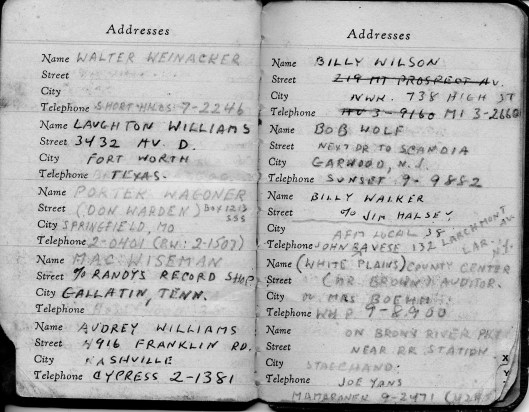 Addresses
Name WALTER WEINACKER
Street
City
Telephone SHORT HILLS: 7-2246
Name LAUGHTON WILLIAMS
Street 3432 AV. D.
City FORT WORTH
Telephone TEXAS.
Name PORTER WAGONER
Street (DON WARDEN) BOX 1213 SSS
City SPRINGFIELD, MO
Telephone 2-0401 (RW: 2-1507)
Name MAC WISEMAN
Street % RANDYS RECORD SHOP
City GALLATIN, TENN.
Telephone
Name AUDREY WILLIAMS
Street 4916 FRANKLIN RD.
City NASHVILLE
Telephone CYPRESS 2-1381
Addresses
Name BILLY WILSON
Street 219 MT PROSPECT AV.
City NWK. 738 HIGH ST
Telephone HU 3-9160 MI 3-2660
Name BOB WOLF
Street NEXT DR TO SCANDIA
City GARWOOD, N.J.
Telephone SUNSET 9-9882
Name BILLY WALKER
Street % JIM HALSEY
City AFM LOCAL 38
Telephone JOHN BAVESE 132 LARCHMONT AV. LAR. N.Y.
Name (WHITE PLAINS) COUNTY CENTER
Street (MR. BROWN) AUDITOR.
City MRS BOEHM.
Telephone WH.P 9-8400
Name ON BRONX RIVER PKY
Street NEAR RR STATION
City STAGEHAND:
Telephone JOE YANS
MAMARONEK 9-2471
X
Y